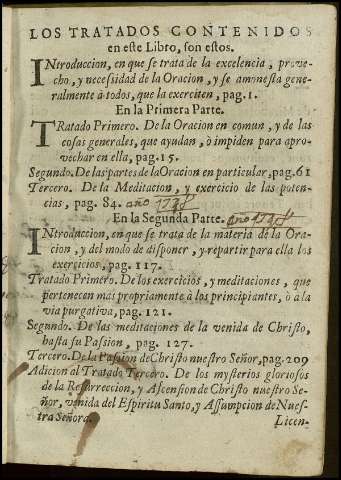 LOS TRATADOS CONTENIDOS
en este Libro, son estos.
INtroduccion, en que se trata de la excelencia, prove-
cho, y necessidad de la Oracion, y se amonesta gene-
ralmente à todos, que la exerciten, pag. 1.
En la Primera Parte.
TRatado Primero. De la Oracion en comun, y de las
cosas generales, que ayudan, ò impiden para apro-
vechar en ella, pag. 15.
Segundo. De las partes de la Oracion en particular, pag. 61
Tercero. De la Meditacion, y exercicio de las poten-
cias, pag. 84. año 1738
En la Segunda Parte. año 1738
INtroduccion, en que se trata de la materia de la Ora-
cion, y del modo de disponer, y repartir para ella los
exercicios, pag. 117.
Tratado Primero. De los exercicios, y meditaciones, que
pertenecen mas propriamente à los principiantes, ò à la
via purgativa, pag. 121.
Segundo. De las meditaciones de la venida de Christo,
hasta su Passion, pag. 127.
Tercero. De la Passion de Christo nuestro Señor, pag. 209
Adicion al Tratado Tercero. De los mysterios gloriosos
de la Resurreccion, y Ascension de Christo nuestro Se-
ñor, venida del Espiritu Santo, y Assumpcion de Nues-
tra Señora.
Licen-